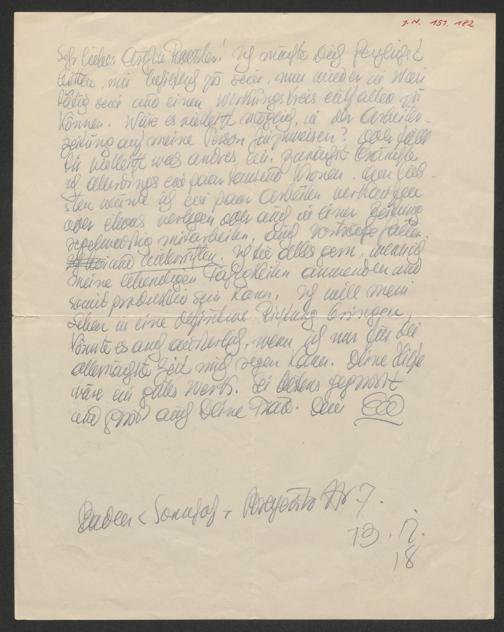 J.N. 151.182
Sehr lieber Arthur Roessler! Ich möchte Dich herzlichst
bitten, mir behilflich zu sein, nun wieder in Wien
tätig sein und einen Wirkungskreis entfalten zu
können. Wäre es vielleicht möglich, in der Arbeiter-
zeitung auf meine Person hinzuweisen? oder fällt
Dir vielleicht was andres ein. zunächst
ich allerdings ein paar tausend Kronen. Am lieb-
sten würde ich ein paar Arbeiten
oder etwas verlegen oder auch in einer Zeitung
regelmässig mitarbeiten, auch Vorträge halten.
und unterrichten. Ich tue alles gern, wenn ich
meine lebendigen Fähigkeiten anwenden und
somit produktiv sein kann. Ich will mein
Leben in eine Richtung bringen,
könnte es auch auswärts, wenn ich nur für die
allernächste Zeit mich regen kann. Deine Hilfe
wäre ein gutes Werk. Sei bestens gegrüsst
und grüsse auch Deine Frau. Dein
Baden Nr 7.
13.
18